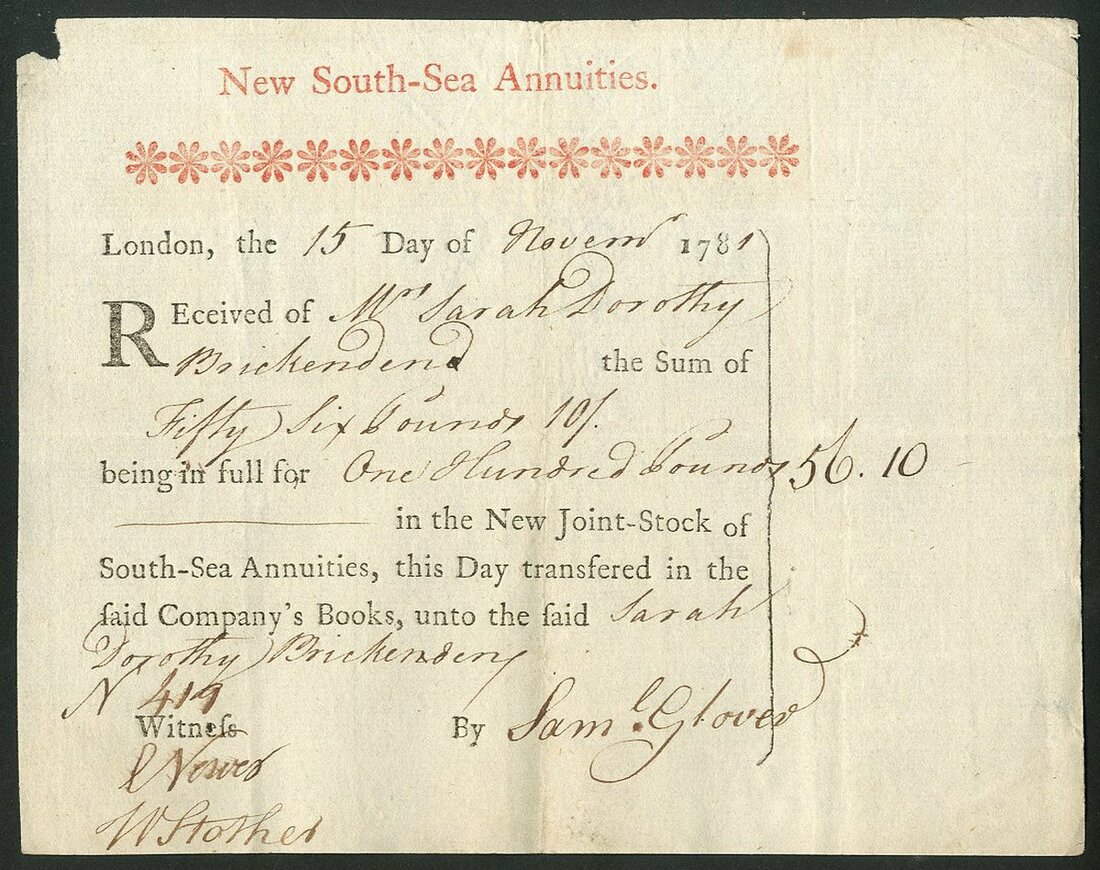 New South-Sea Annuities.
London, the 15 Day of Novemr 1781
REceived of Mrs Sarah Dorothy
Brickenden the Sum of
Fifty Six Pounds 10/.
being in full for One Hundred Pounds 56.10
in the New Joint-Stock of
South-Sea Annuities, this Day transfered in the
ſaid Company's Books, unto the ſaid Sarah
Dorothy Brickenden
N 419
Witneſs By Saml. Glover